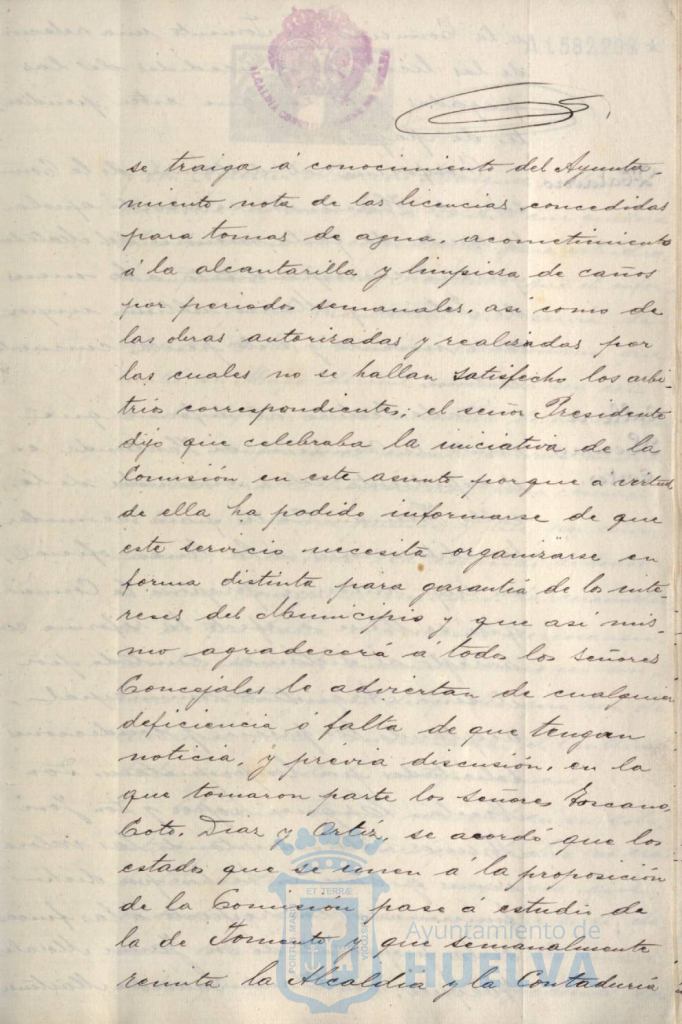 se traiga á conocimiento del Ayunta-
miento nota de las licencias concedidas
para tomas de agua, acometimiento
á la alcantarilla y limpiesa de caños
por periodos semanales, asi como de
las obras autorizadas y realizadas por
las cuales no se hallan satisfecho los arbi-
trios correspondientes; el señor Presidente
dijo que celebraba la iniciativa de la
Comisión en este asunto porque á virtud
de ella ha podido informarse de que
este servicio necesita organizarse en
forma distinta para garantia de los inte-
reses del Municipio y que asi mis-
mo agradecerá á todos los señores
Concejales le adviertan de cualquier
deficiencia ó falta de que tengan
noticia, y prévia discusión, en la
que tomaron parte los señores Toscano,
Coto, Diaz y Ortiz, se acordó que los
estados que se unen á la proposición
de la Comisión pase á estudio de
la de Fomento y que semanalmente
remita la Alcaldia y la Contaduría
Ayuntamiento de
HUELVA